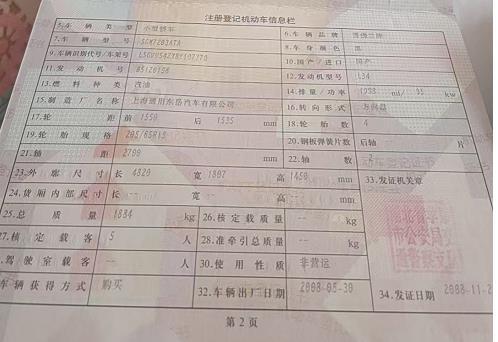 注册登记机动车信息栏
5.车辆类型 小型轿车 6.车辆品牌 雪佛兰牌
7.车辆型号 SGM7203ATA 8.车身颜色 黑
9.车辆识别代号/车架号 10.国产/进口 国产
11.发动机号 12.发动机型号 L34
13.燃料种类 汽油 14.排量/功率 1998 ml/ 95 kw
15.制造厂名称 上海通用东岳汽车有限公司 16.转向形式 方向盘
17.轮距 前 1550 后 1535 mm 18.轮胎数 4
19.轮胎规格 205/65R15 20.钢板弹簧片数 后轴 片
21.轴距 2700 mm 22.轴数
23.外廓尺寸 长 4820 宽 1807 高 1450 mm 33.发证机关章
24.货厢内部尺寸 长 宽 -- 高 mm
25.总质量 1884 kg 26.核定载质量 -- kg
27.核定载客 5 人 28.准牵引总质量 -- kg
.驾驶室载客 -- 人 30.使用性质 非营运
车辆获得方式 购买 32.车辆出厂日期 2008-05-30 34.发证日期 2008-11-2
第2页